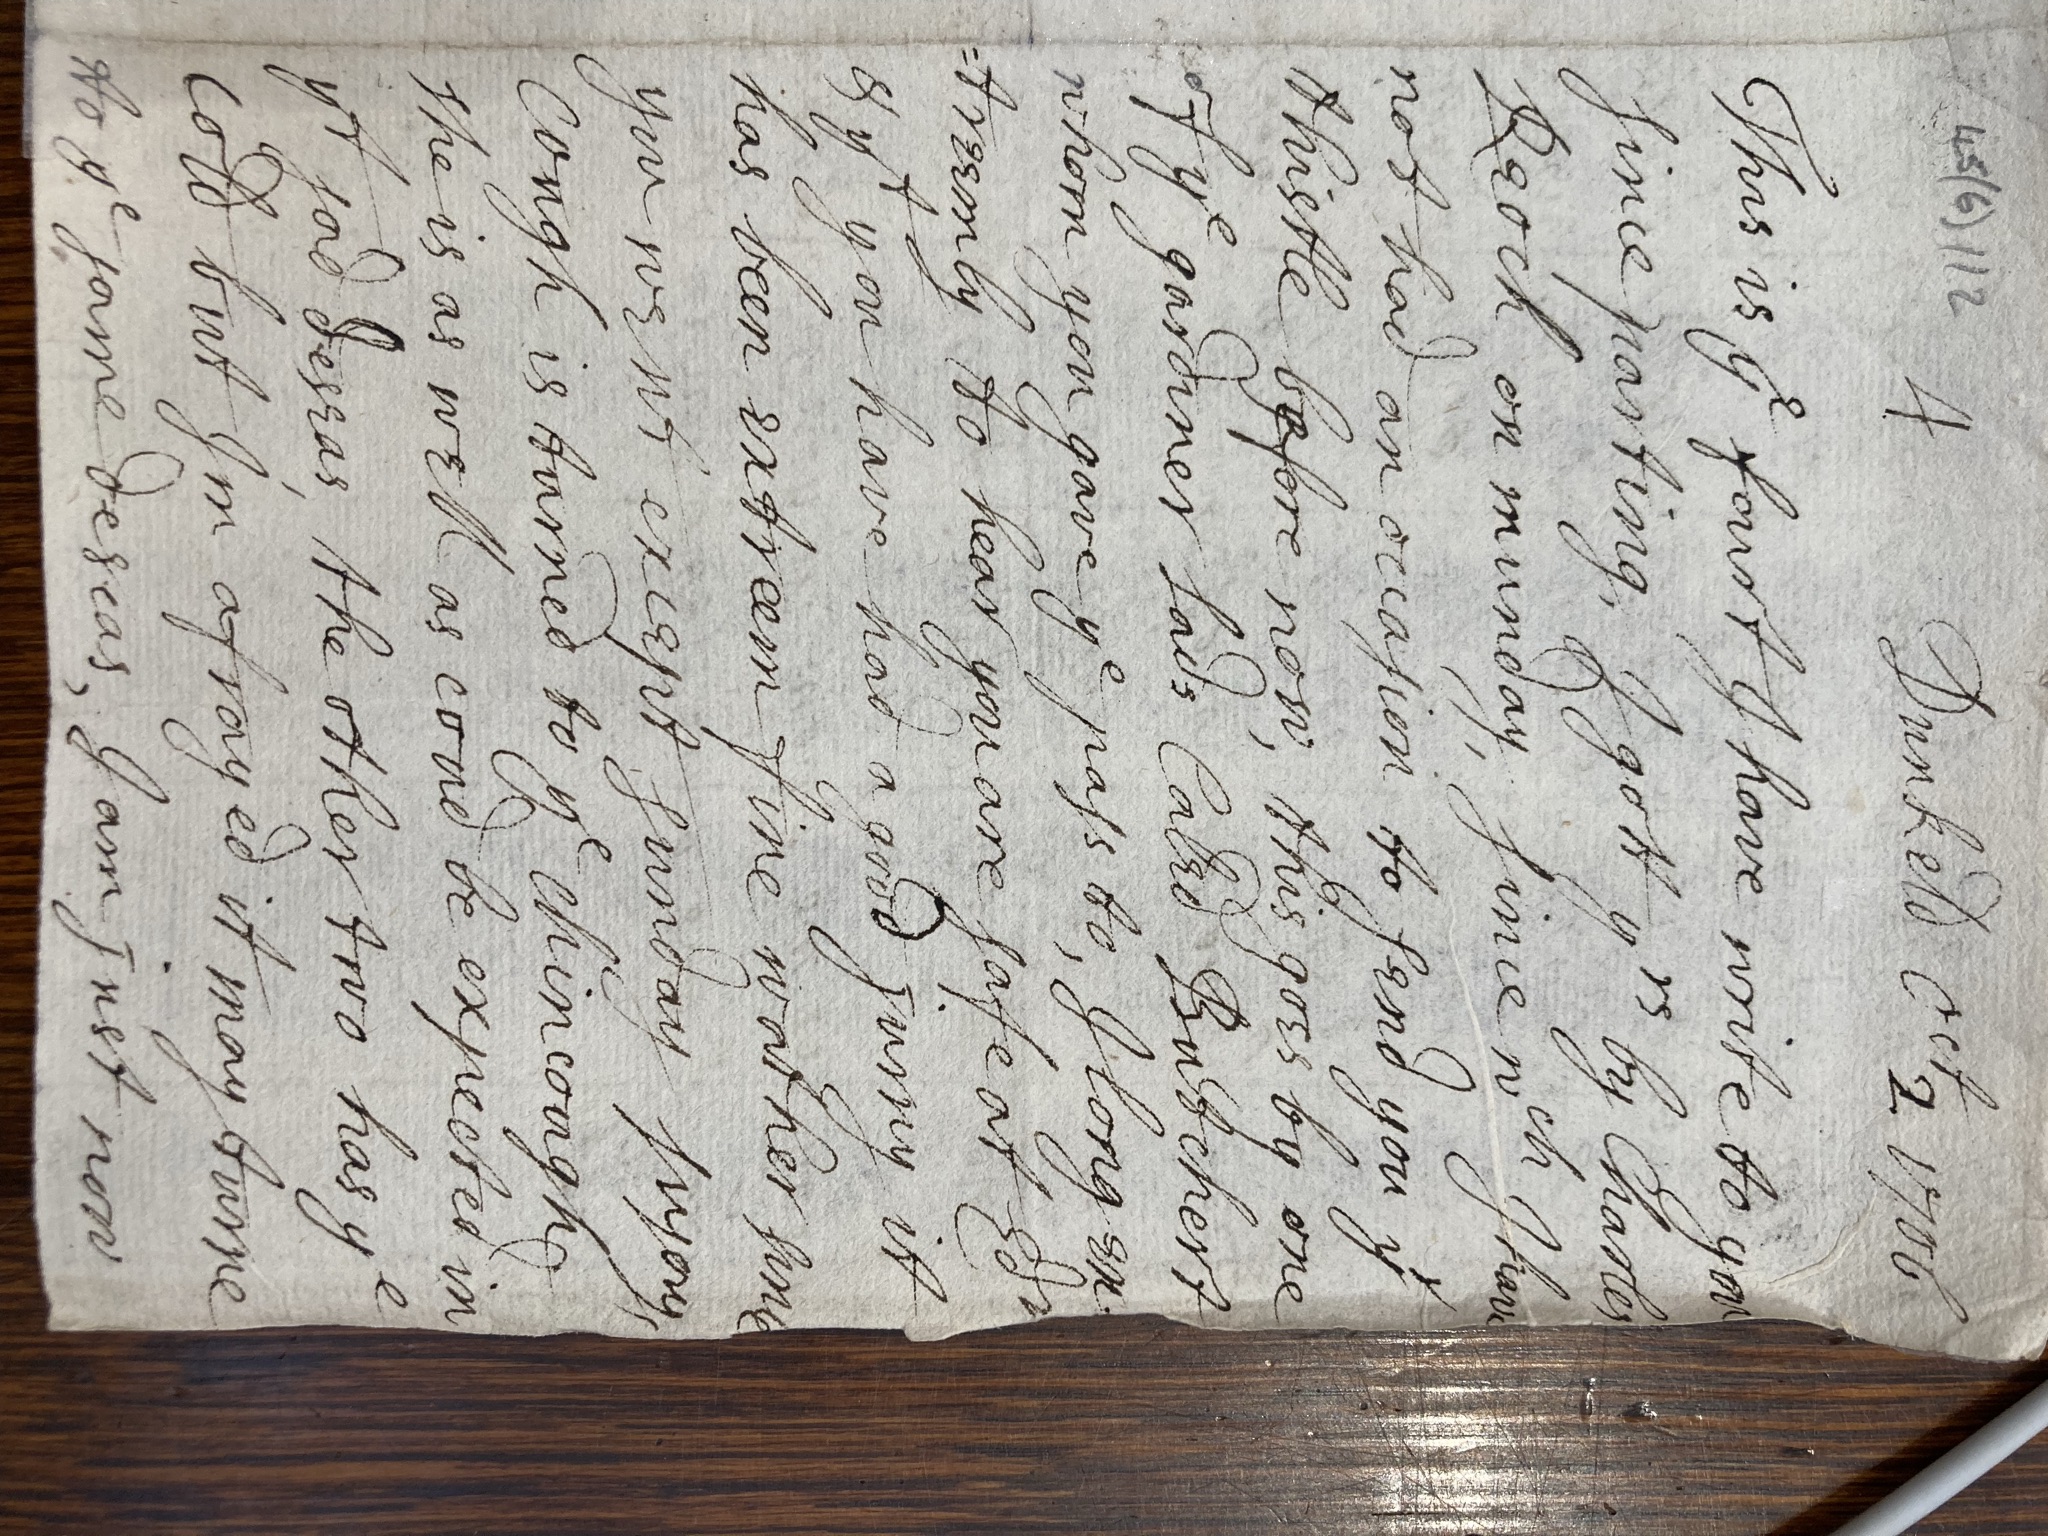 45(6)112
4 Dunkeld Oct 2 1706
This is ye fourt I have write to you
since parting, I gott yrs by Charles
Reoch on munday, since wch I have
not had an occasion to send you yr
thistle before now, this goes by one
of ye gardiner lads Caled Butchert
whom you gave ye pass to, I long ex
=treemly to hear you are safe at Edr
& yt you have had a good jurny it
has been extreem fine wather since
you went except sunday
cough is turned to ye chincough
she is as well as coud be expected in
yt sad deseas, the other two has ye
cold but Im afrayed it may turne
to ye same deseas, I am just now